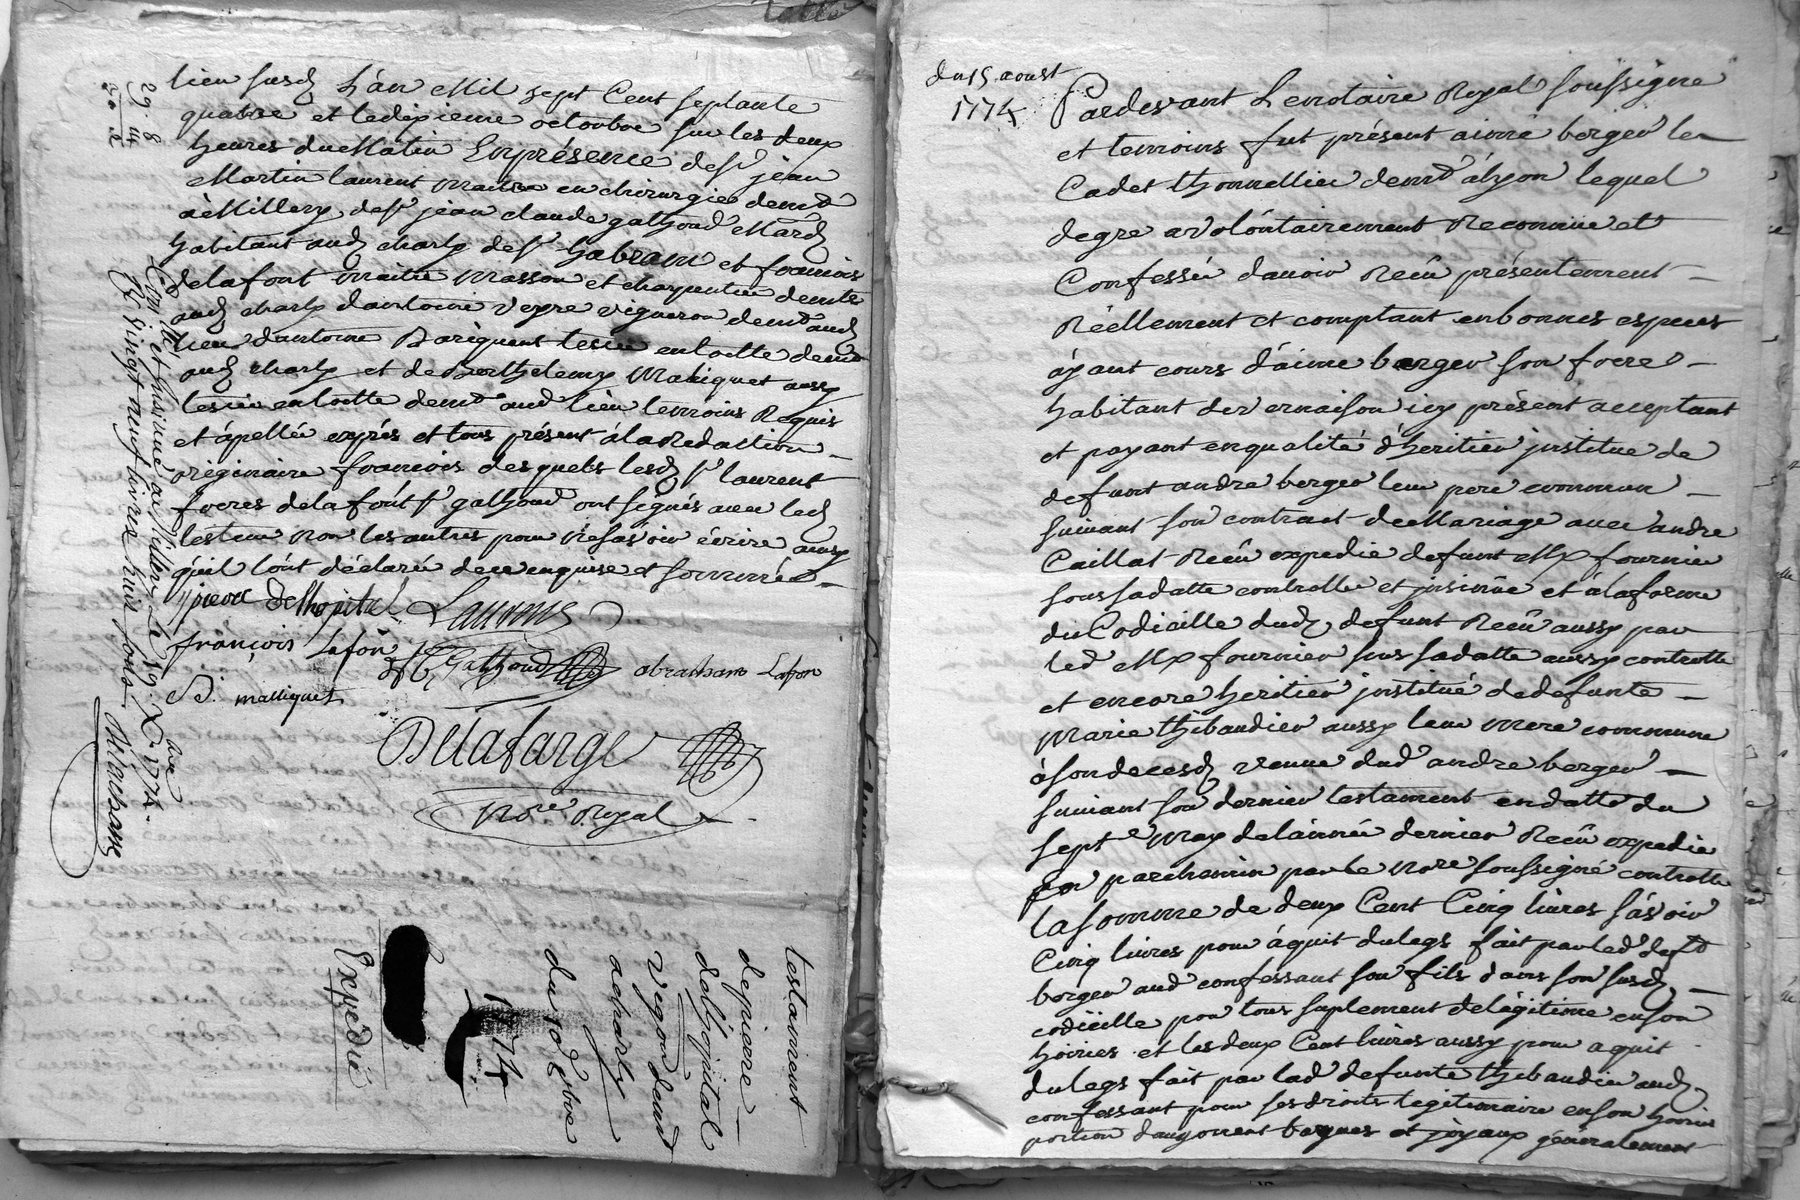 lieu susd L'an Mil sept Cent septante
quatre et ledixieme octoubre sur les deux
heures duMatin Enprésence des.r jean
Martin laurent maitre en chirurgie demt
àMillery, des.r jean claude gathoud Mard
habitant aud charly de s.r habram et francois
delafont maitre masson et charpentier demts
aud charly dantoine vepre vigneron demt aud
lieu dantoine tesier entoille demt
aud charly et de Berthelemy Maliquet aussy
tesier entoille demt aud lieu temoins Requis
et apellée exprés et tous présent àlaRedaction
originaire francois desquels lesd s.r laurent
freres delafont s.r gathoud ont signés avec led
testeur non les autres pour nesavoir écrire ainsy
quil lont déclarée dece enquise et sommée
pierre delhopital Laurens
françois Lafon
Gathoud abraham Lafon
B. malliquet
Delafarge
No.re Royal
Con.lle et insinué a Millery Le 19. X.bre 1774.
R vingt neuf livres huit sols Delachass
29. 8
testament
depierre
delhopital
vigon demt
acharly
du 10 8bre
1774
Expedié
du 15. aoust
1774
Pardevant Lenotaire Royal soussigné
et temoins fut présent aimé berger le
Cadet thonnellier demt alyon lequel
degré avolontairement Reconnüe et
Confessée davoir Reçû présentement
Réellement et comptant enbonnes especes
áyant cours d'aime berger son frere
habitant devernaison icy présent acceptant
et payant enqualité d'heritier institue de
defunt andre berger leur pere commun
suivant son contract deMariage avec andre
Caillat Reçû expedie defunt M.e fournier
soussadatte controlle et insinüe et àlaforme
du Codicille dud, defunt Reçû aussy par
led M.e fournier sous sadatte aussy controlle
et encore heritier institué dedefunte
Marie thibaudier aussy leur mere commune
àson decesd, veuve dud andre berger
suivant son dernier testament endatte du
sept.e may delannée derniere Reçû expedie
en parchemin par le nore soussigné controlle
lasomme de deux Cent Cinq livres sávoir
Cinq livres pour áquit dulegs fait parled deft
berger aud confessant son fils dans son susd,
codicille pour tous suplement delégitime enson
hoiries et lesdeux Cent livres aussy pour aquit
dulegs fait par lad defunte thibaudier aud,
confessant pour ses droits legitimaire enson hoirie
portion daugment bagues et joyaux généralement